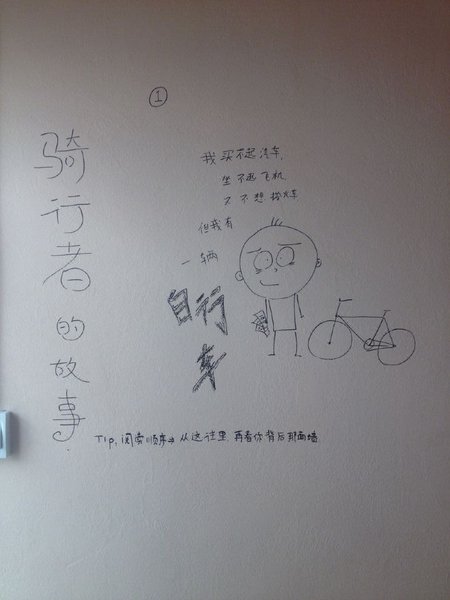 ①
骑行者的故事
我买不起汽车,
坐不起飞机,
又不想挤火车
但我有
一辆
自行
车
TIP: 阅读顺序→从这往里,再看你背后那面墙